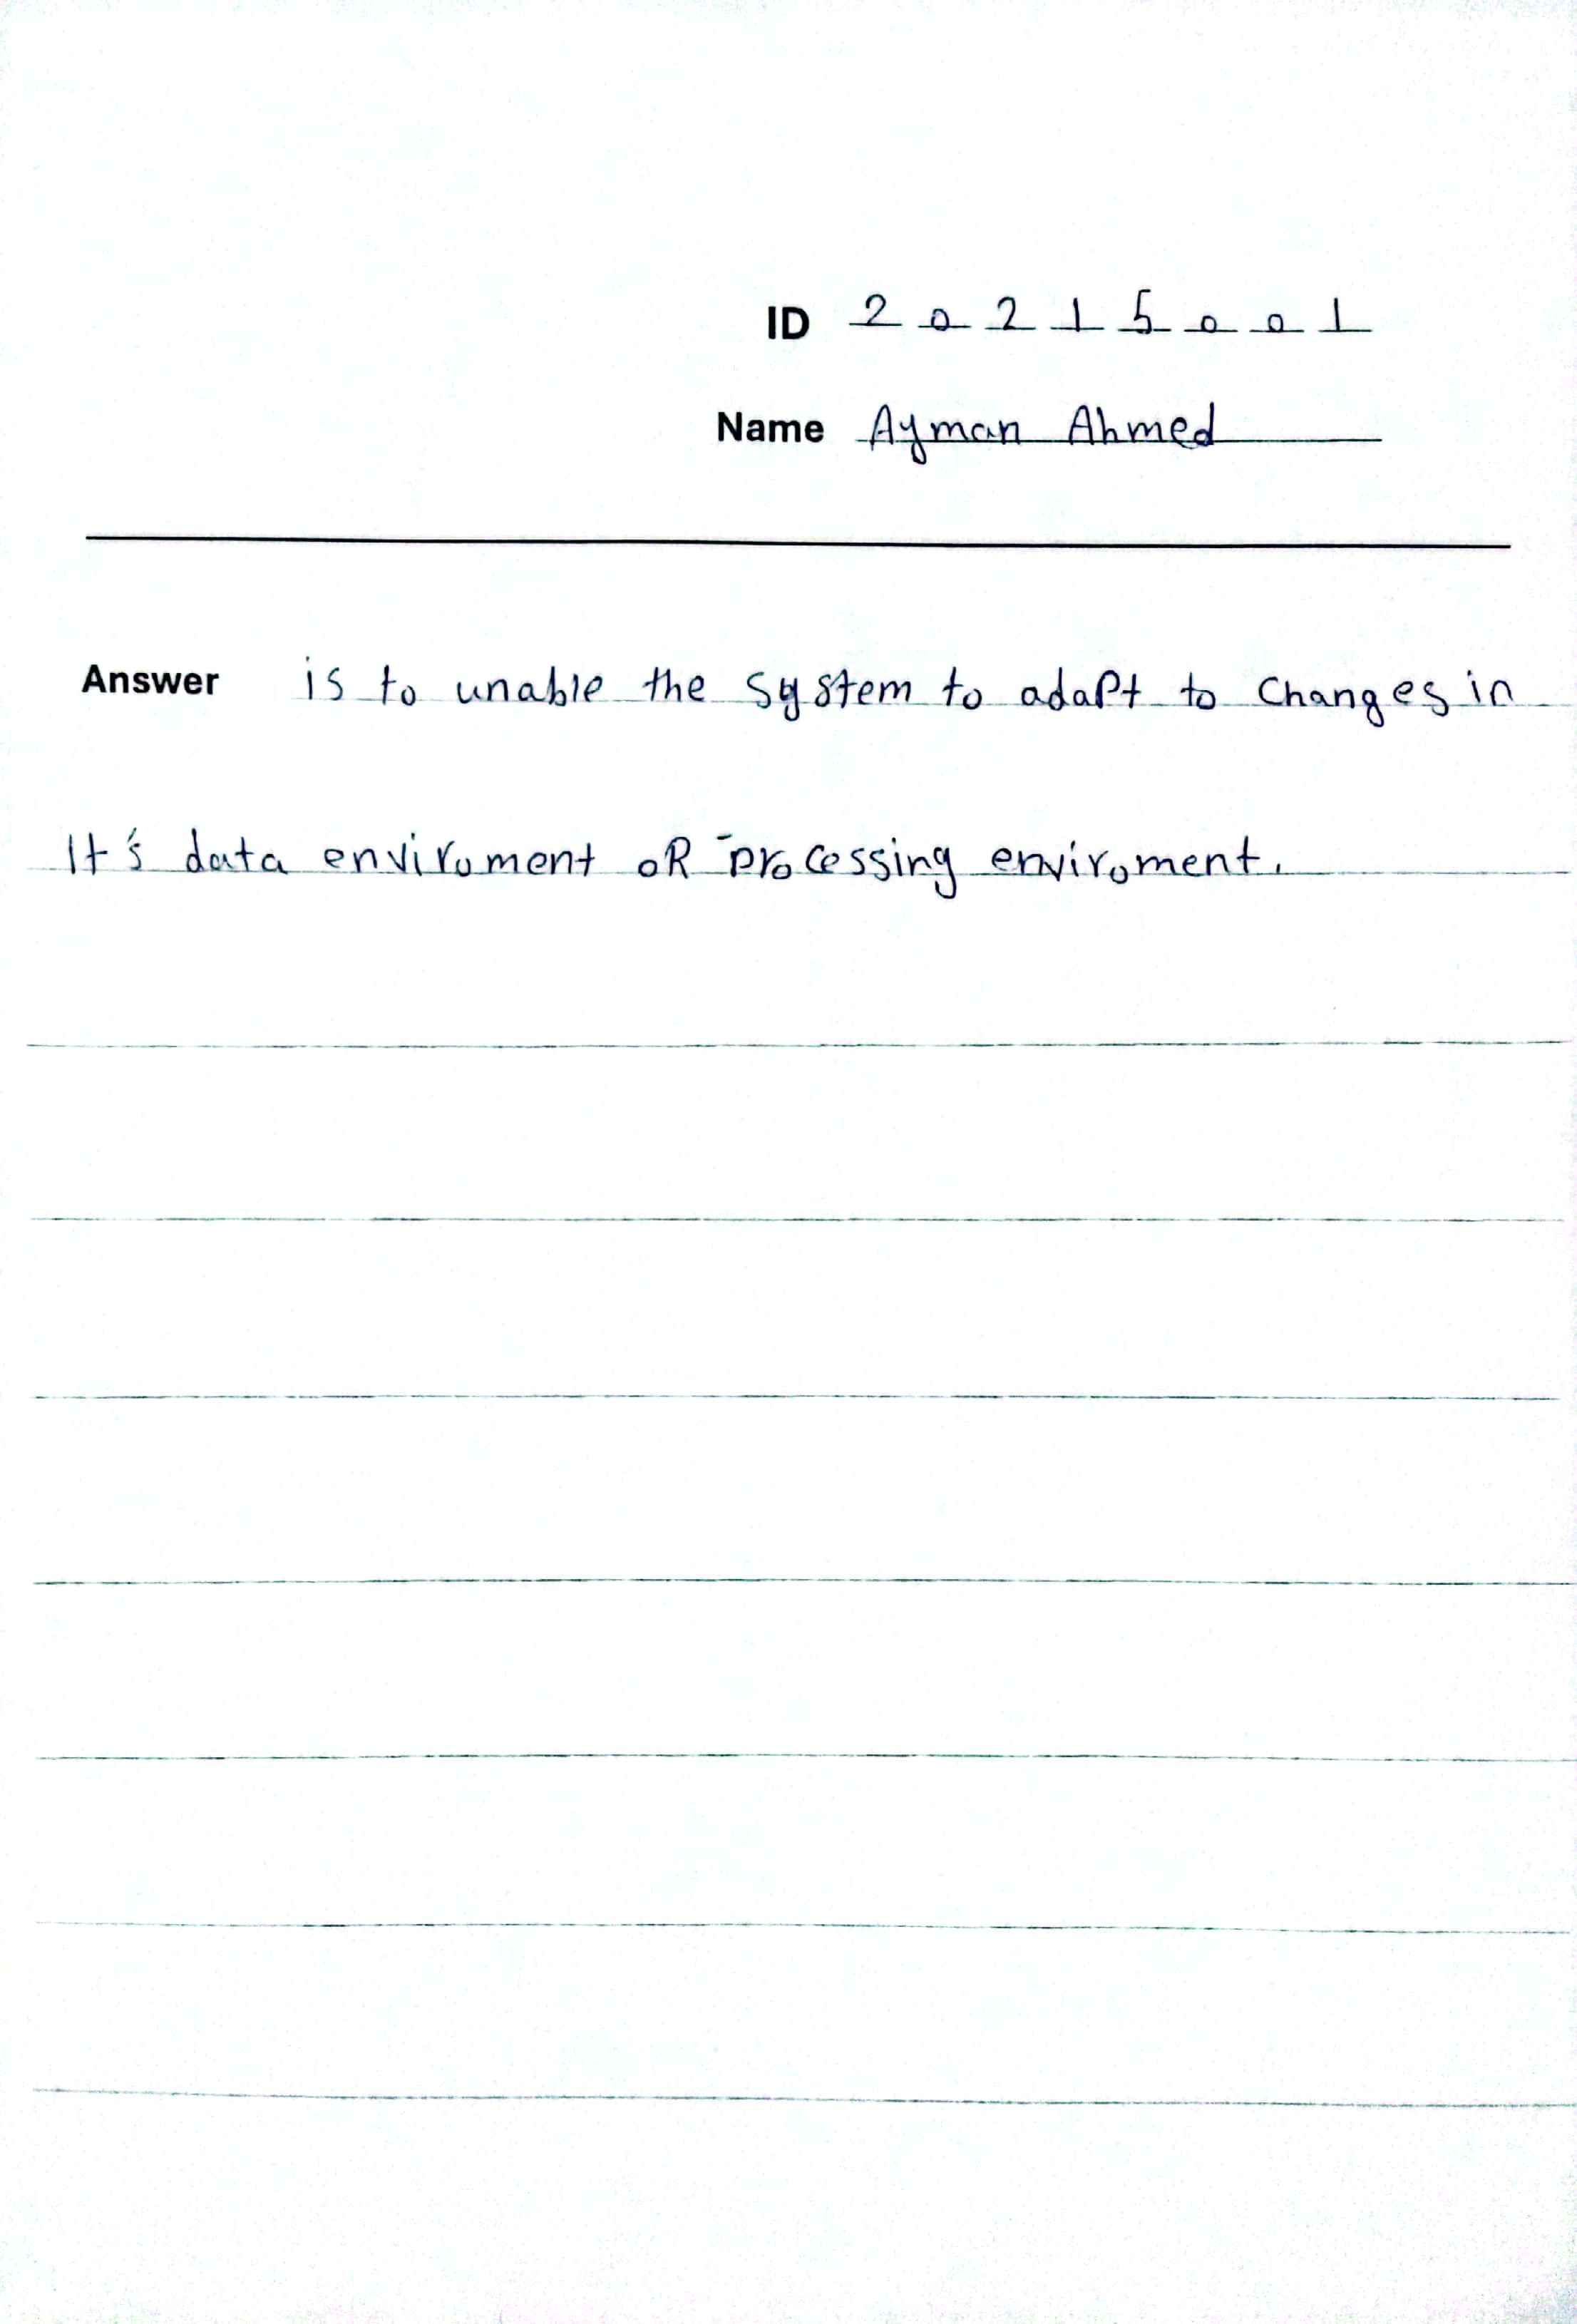 ID 2 0 2 1 5 0 0 1
Name Ayman Ahmed
Answer is to unable the system to adapt to changes in
It's data enviroment oR processing enviroment.